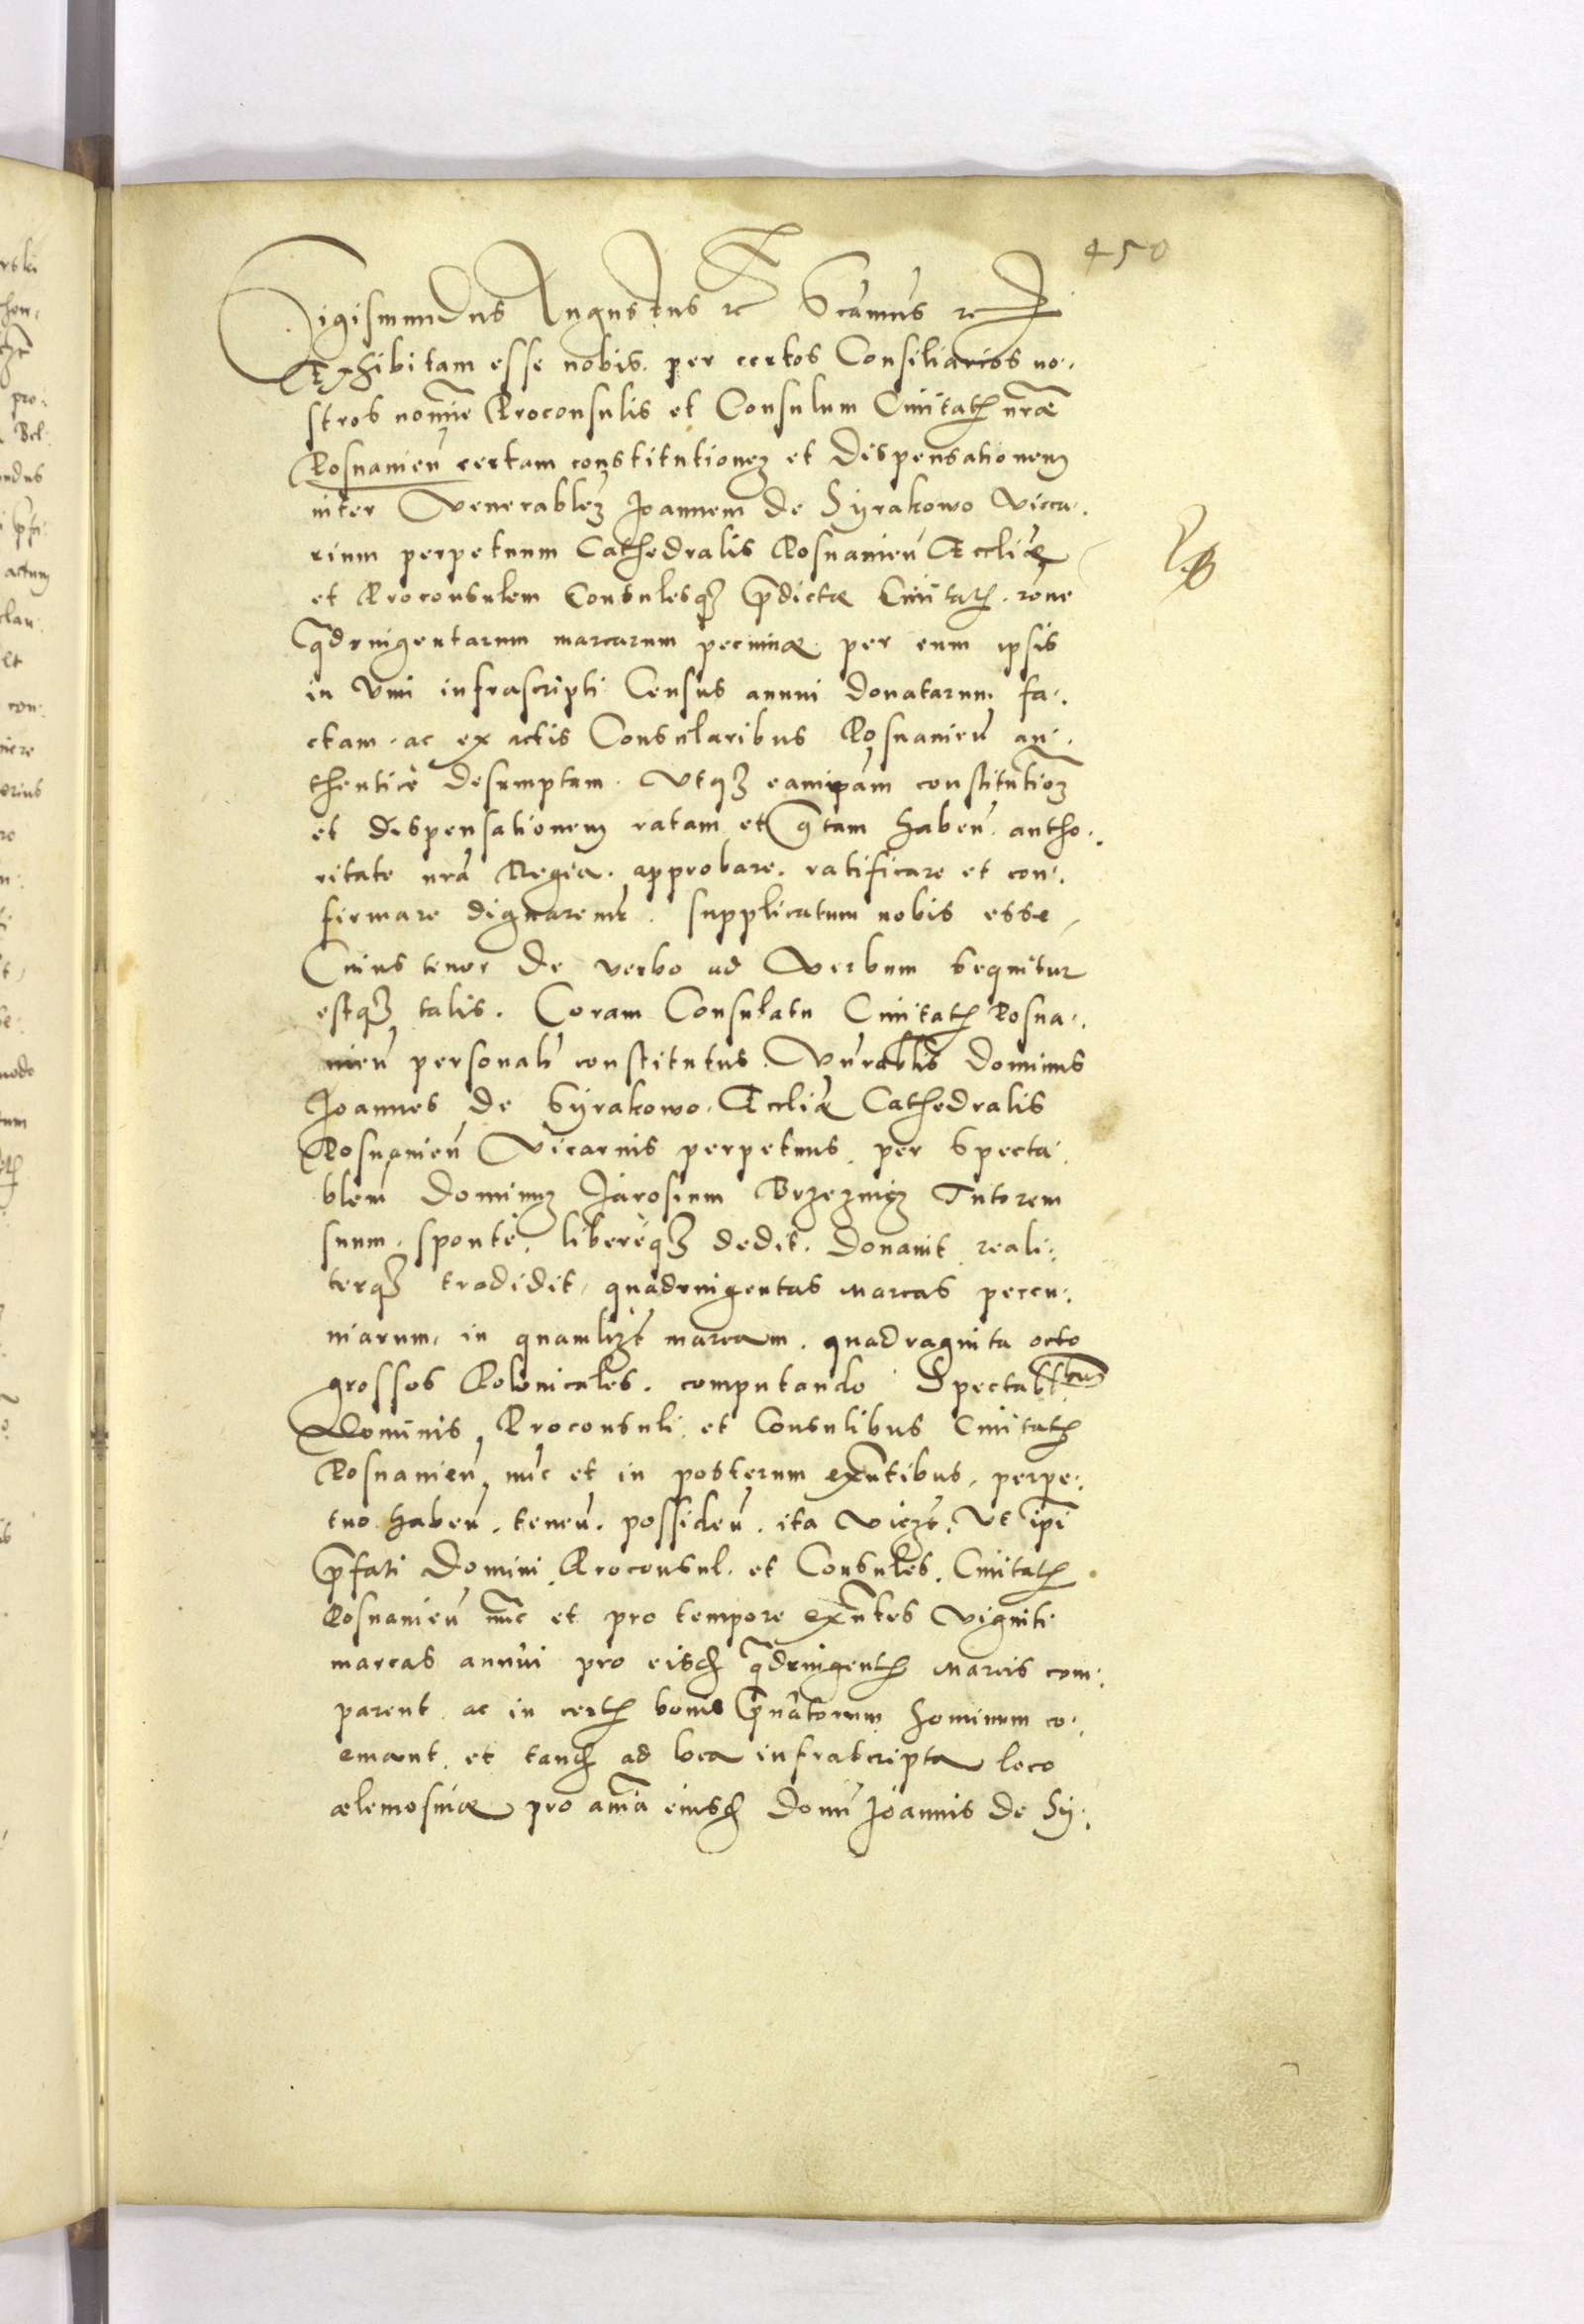 450
Sigismundus Augustus etc Scimus etc
Exhibitam esse nobis per certos Consiliarios no-
stros nomine Proconsulis et Consulum Ciuitatis nrae
Posnanien certam constitutionem et dispensationem
inter Venerablem Joannem de Syrakowo Vicca-
rium perpetuum Cathedralis Posnanien Eccliae
et Proconsulem Consulesque pdictae Ciuitatis rone
qdringentarum marcarum pecuniae per eum ipsis
in vim infrascripti Census annui donatarum fa-
ctam ac ex actis Consularibus Posnanien au-
thenticè desumptam. Utque eamipam constitutioem
et dispensationem ratam et gtam haben autho-
ritate nra Regia approbare ratificare et con-
firmare dignaremr. supplicatum nobis esse
Cuius tenor de verbo ad verbum sequitur
estque talis. Coram Consulatu Ciuitatis Posna-
nien personalr constitutus Vnrablis Dominus
Joannes de Syrakowo Eccliae Cathedralis
Posnanien Vicarius perpetuus per Specta-
blem Dominum Jarosium Brzeznicz Tutorem
suum sponte, libereque dedit. Donauit reali-
terque tradidit quadringentas marcas peccu-
niarum in quamlizt marcam quadraginta octo
grossos Polonicales computando Spectablibus
Dominis Proconsuli et Consulibus Ciuitatis
Posnanien nuc et in posterum exntibus perpe-
tuo haben. tenen. possiden. ita vidzt. Ut ipi
pfati Domini Proconsul et Consules Ciuitatis
Posnanien nuc et pro tempore exntes viginti
marcas annui pro eisd qdringentis marcis com-
parent ac in certis bonis priuatorum hominum co-
emant et tand ad loca infrascripta loco
aelemosinae pro aima eiusd domi Joannis de Sy-